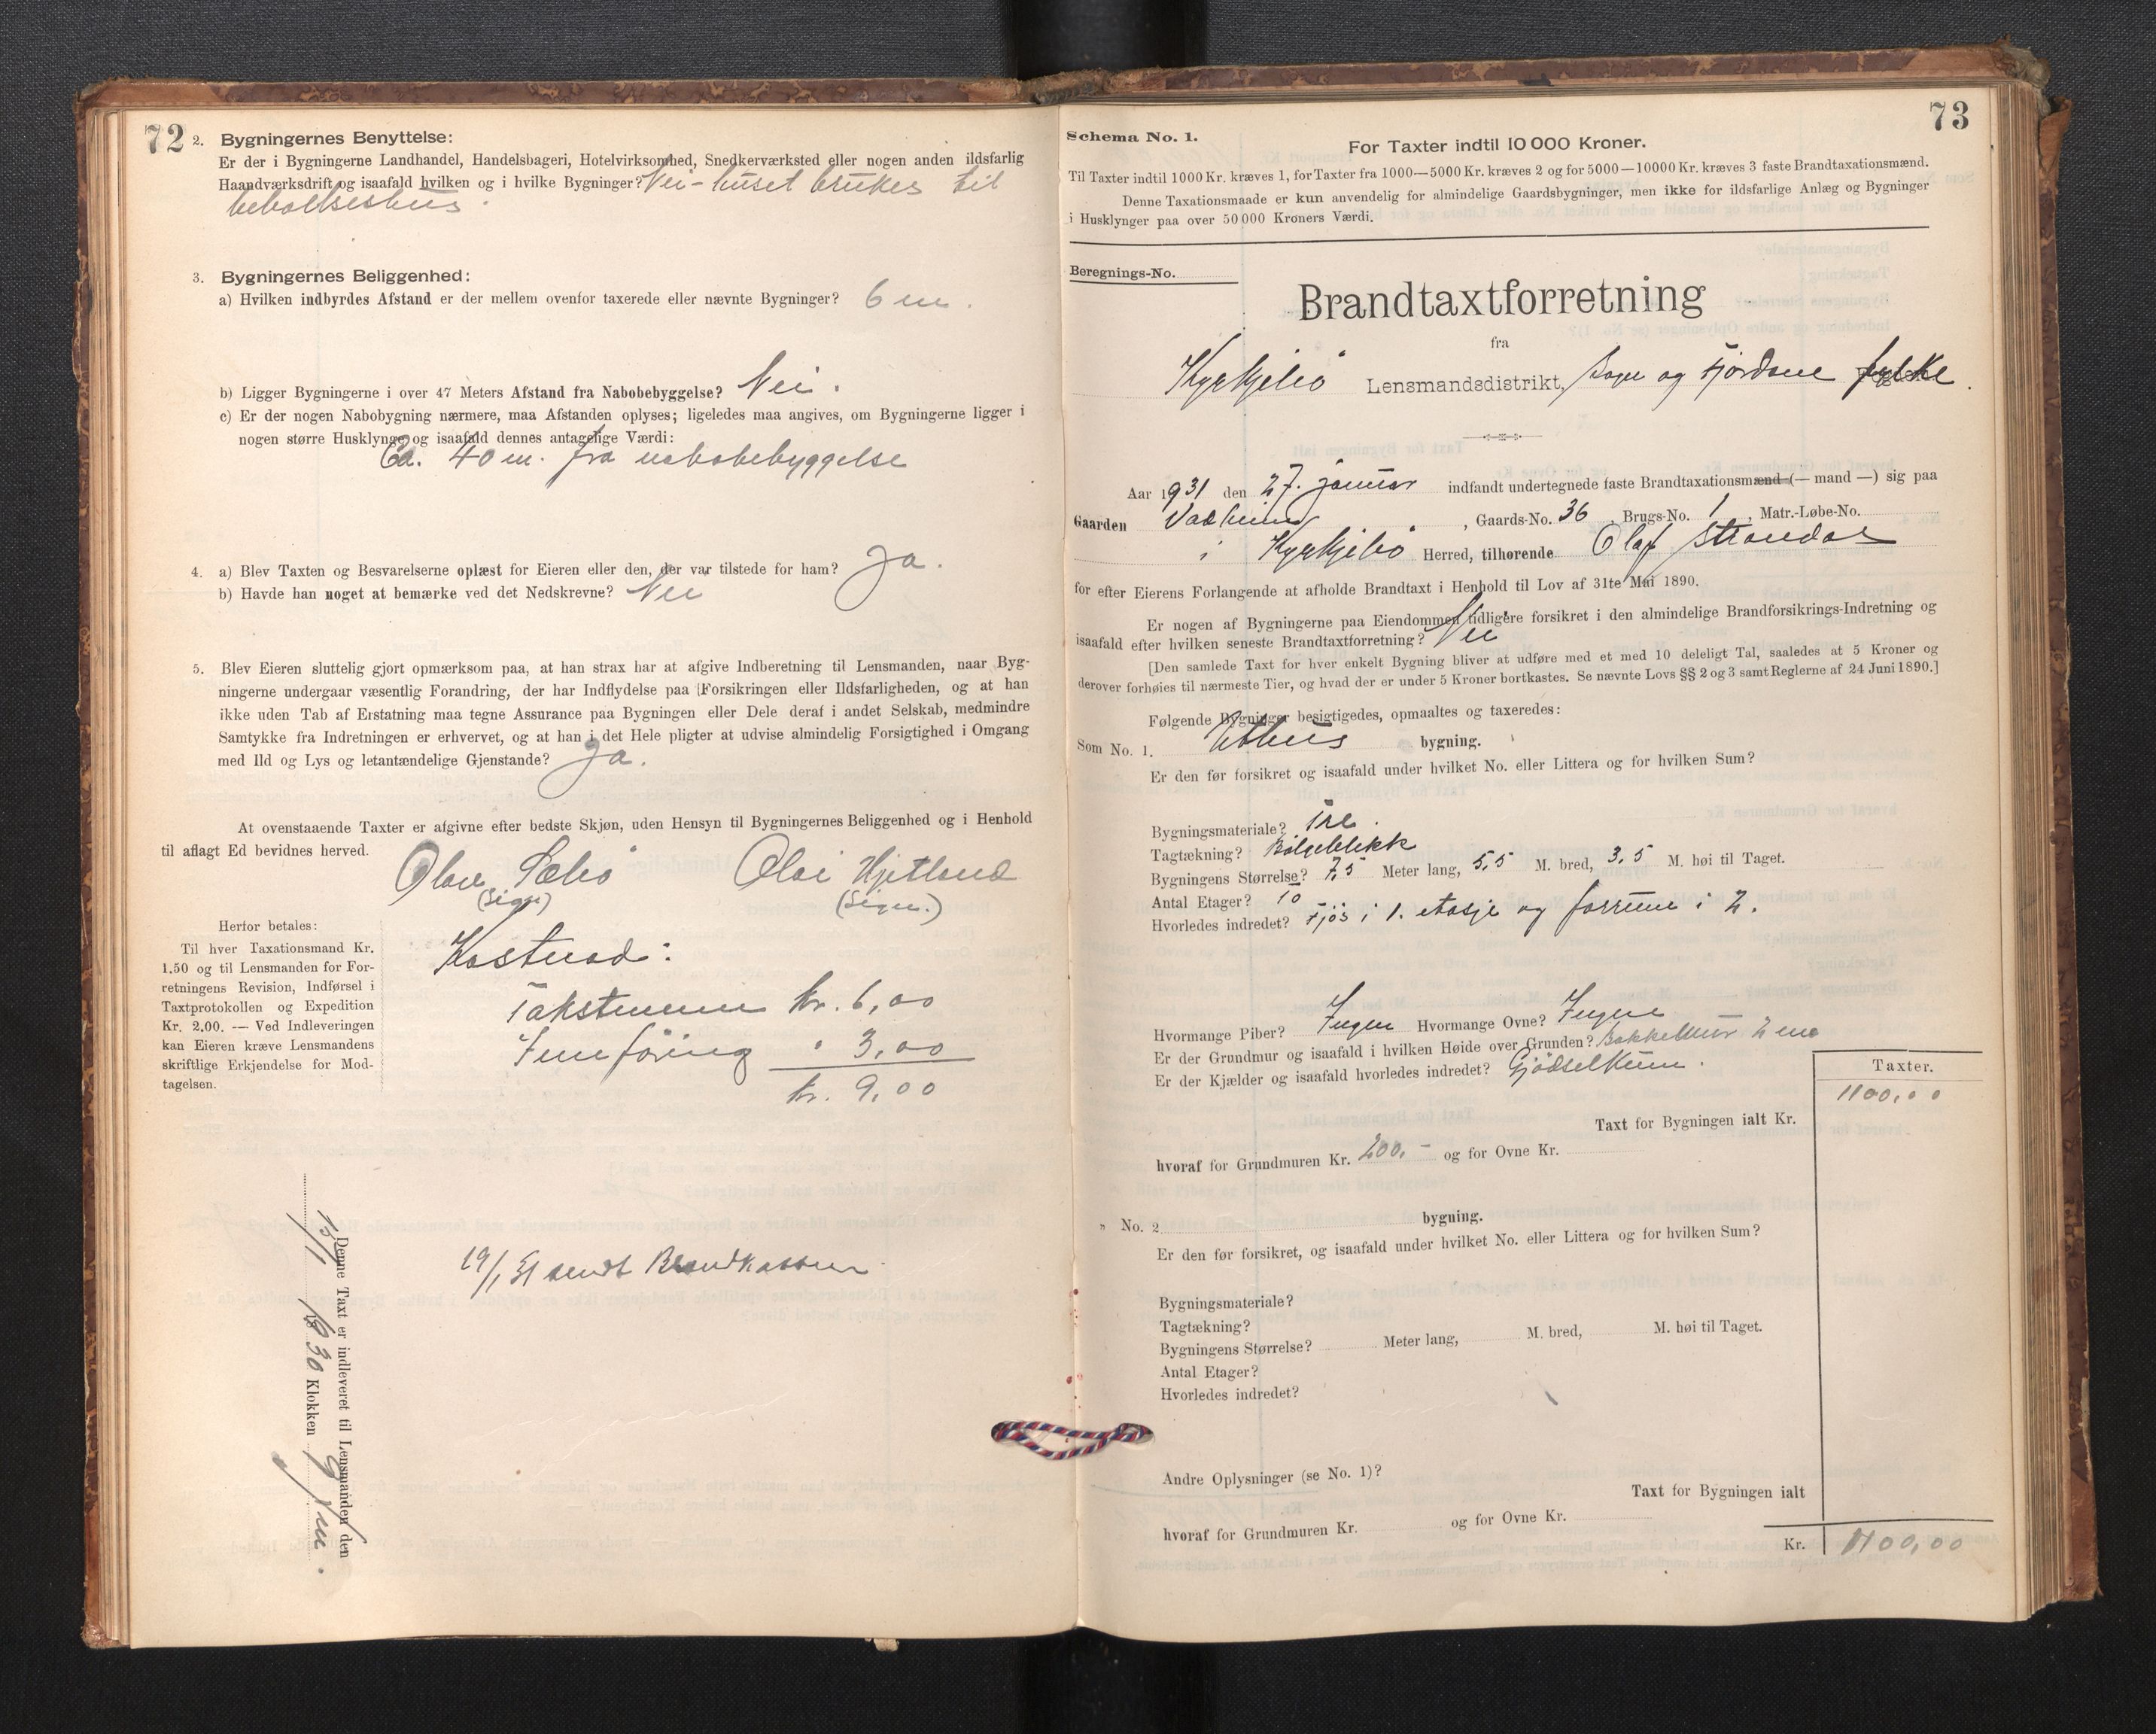 72
2. Bygningernes Benyttelse:
Er der i Bygningerne Landhandel, Handelsbageri, Hotelvirksomhed, Snedkerværksted eller nogen anden ildsfarlig
Haandværksdrift og isaafald hvilken og i hvilke Bygninger? Nei - huset brukes til
beboelseshus.
3. Bygningernes Beliggenhed:
a) Hvilken indbyrdes Afstand er der mellem ovenfor taxerede eller nævnte Bygninger? 6 m.
b) Ligger Bygningerne i over 47 Meters Afstand fra Nabobebyggelse? Nei.
c) Er der nogen Nabobygning nærmere, maa Afstanden oplyses; ligeledes maa angives, om Bygningerne ligger i
nogen større Husklynge og isaafald dennes antagelige Værdi:
Ca. 40 m. fra nabobebyggelse
4. a) Blev Taxten og Besvarelserne oplæst for Eieren eller den, der var tilstede for ham? Ja.
b) Havde han noget at bemærke ved det Nedskrevne? Nei
5. Blev Eieren sluttelig gjort opmærksom paa, at han strax har at afgive Indberetning til Lensmanden, naar Byg-
ningerne undergaar væsentlig Forandring, der har Indflydelse paa Forsikringen eller Ildsfarligheden, og at han
ikke uden Tab af Erstatning maa tegne Assurance paa Bygningen eller Dele deraf i andet Selskab, medmindre
Samtykke fra Indretningen er erhvervet, og at han i det Hele pligter at udvise almindelig Forsigtighed i Omgang
med Ild og Lys og letantændelige Gjenstande? Ja.
At ovenstaaende Taxter er afgivne efter bedste Skjøn, uden Hensyn til Bygningernes Beliggenhed og i Henhold
til aflagt Ed bevidnes herved.
Olav Sæbö Olai Hjetland
(Sign) (Sign.)
Herfor betales:
Til hver Taxationsmand Kr.
1.50 og til Lensmanden for For-
retningens Revision, Indførsel i
Taxtprotokollen og Expedition
Kr. 2.00. — Ved Indleveringen
kan Eieren kræve Lensmandens
skriftlige Erkjendelse for Mod-
tagelsen.
Kostnad:
Takstmenn kr. 6,00
Innföring " 3,00
kr. 9,00
Denne Taxt er indleveret til Lensmanden den
1930 Klokken 9
19/1 31 sendt Brandkassen
73
Schema No. 1.
For Taxter indtil 10 000 Kroner.
Til Taxter indtil 1000 Kr. kræves 1, for Taxter fra 1000—5000 Kr. kræves 2 og for 5000—10000 Kr. kræves 3 faste Brandtaxationsmænd.
Denne Taxationsmaade er kun anvendelig for almindelige Gaardsbygninger, men ikke for ildsfarlige Anlæg og Bygninger
i Husklynger paa over 50 000 Kroners Værdi.
Beregnings-No.
Brandtaxtforretning
fra
Kyrkjebö Lensmandsdistrikt, Sogn og Fjordane fylke.
Aar 1931 den 27. januar indfandt undertegnede faste Brandtaxationsmænd (— mand —) sig paa
Gaarden Vadheim, Gaards-No. 36, Brugs-No. 1, Matr.-Løbe-No.
i Kyrkjebö Herred, tilhørende Olaf Strandos
for efter Eierens Forlangende at afholde Brandtaxt i Henhold til Lov af 31te Mai 1890.
Er nogen af Bygningerne paa Eiendommen tidligere forsikret i den almindelige Brandforsikrings-Indretning og
isaafald efter hvilken seneste Brandtaxtforretning? Nei
[Den samlede Taxt for hver enkelt Bygning bliver at udføre med et med 10 deleligt Tal, saaledes at 5 Kroner og
derover forhøies til nærmeste Tier, og hvad der er under 5 Kroner bortkastes. Se nævnte Lovs §§ 2 og 3 samt Reglerne af 24 Juni 1890.]
Følgende Bygninger besigtigedes, opmaaltes og taxeredes:
Som No. 1. Uthus bygning.
Er den før forsikret og isaafald under hvilket No. eller Littera og for hvilken Sum?
Bygningsmateriale? Tre.
Tagtækning? Bölgeblikk
Bygningens Størrelse? 7,5 Meter lang, 5,5 M. bred, 3,5 M. høi til Taget.
Antal Etager? To
Hvorledes indredet? Fjös i 1. etasje og forrum i 2.
Hvormange Piber? Ingen Hvormange Ovne? Ingen
Er der Grundmur og isaafald i hvilken Høide over Grunden? Bakkemur 2 m
Er der Kjælder og isaafald hvorledes indredet? Gjödselkum.
Taxter.
1100,00
Taxt for Bygningen ialt Kr.
hvoraf for Grundmuren Kr. 200,- og for Ovne Kr.
" No. 2 bygning.
Er den før forsikret, og isaafald under hvilket No. eller Littera og for hvilken Sum?
Bygningsmateriale?
Tagtækning?
Bygningens Størrelse? Meter lang, M. bred, M. høi til Taget.
Antal Etager?
Hvorledes indredet?
Andre Oplysninger (se No. 1)?
Taxt for Bygningen ialt
hvoraf for Grundmuren Kr. og for Ovne Kr.
Kr. 1100,00